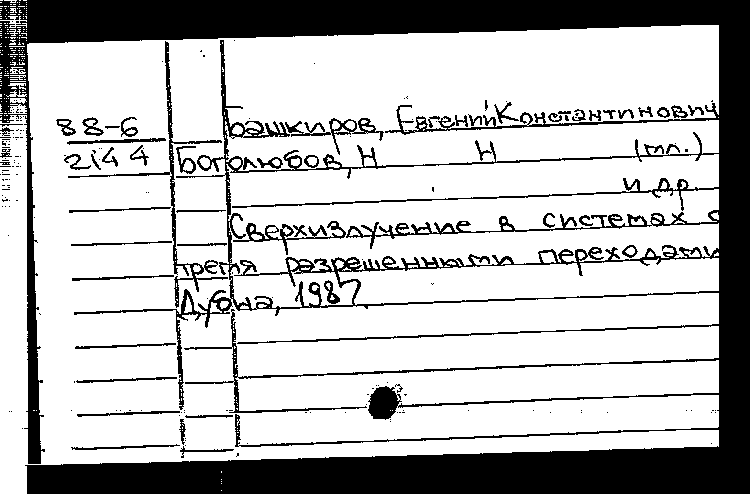 88-6 Башкиров, Евгений Константинович
2144 Боголюбов, Н Н (мл.)
и др.
Сверхизлучение в системах с
тремя разрешенными переходами
Дубна, 1987.